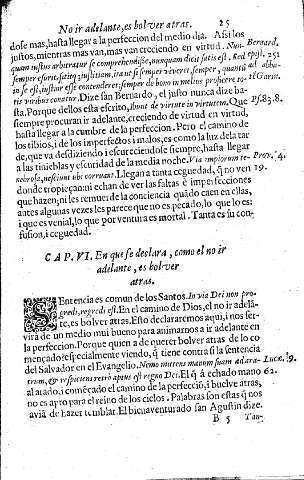 No ir adelante, es bolver atras. 25
dose mas, hasta llegar a la perfeccion del medio dia. Assi los
justos, mientras mas van, mas van creciendo en virtud. Nun- Bernard.
quam justus arbitratur se comprehendisse, nunquam dicit satis est, sed epist. 251
semper esurit, sitiq; justitiam, ita ut si semper viveret, semper, quantũ ad abba-
in se est, justior esse contenderet; semper de bono in melius proficere to- Garin.
tis viribus conatur. Dize san Bernardo, el justo nunca dize ba-
sta. Porque dellos està escrito, Ibunt de virtute in virtutem. Que Ps. 83. 8.
siempre procuran ir adelante, creciendo de virtud en virtud,
hasta llegar a la cumbre de la perfeccion. Pero el camino de
los tibios, i de los imperfectos i malos, es como la luz dela tar
de, que va desdiziendo i escureciendose siempre, hasta llegar
a las tinieblas y escuridad de la media noche. Via impiorum te- Prov. 4.
nebrosa, nesciunt ubi corruant. Llegan a tanta ceguedad, q̃ no ven 19.
donde tropieçan; ni echan de ver las faltas è imperfecciones
que hazen; ni les remuerde la conciencia quãdo caen en ellas,
antes algunas vezes les parece que no es pecado, lo que lo es:
i que es venial, lo que por ventura es mortal. Tanta es su con-
fusion, i ceguedad.
CAP. VI. En que se declara, como el no ir
adelante, es bolver
atras.
SEntencia es comun de los Santos. In via Dei non pro-
gredi, regredi est. En el camino de Dios, el no ir adelã-
te, es bolver atras. Esto declararemos aqui, i nos ser-
virà de un medio mui bueno para animarnos a ir adelante en
la perfeccion. Porque quien a de querer bolver atras de lo co
mençado? especialmente viendo, q̃ tiene contra si la sentencia
del Salvador en el Evangelio. Nemo mittens manum suam ad ara- Luc. 9.
trum, & respiciens retrò aptus est regno Dei. El q̃ à echado mano 62.
al arado, i comẽçado el camino de la perfeccion, i buelve atras,
no es apto para el reino de los cielos. Palabras son estas q̃ nos
aviã de hazer temblar. El bienaventurado san Agustin dize.
B 5 Tan-